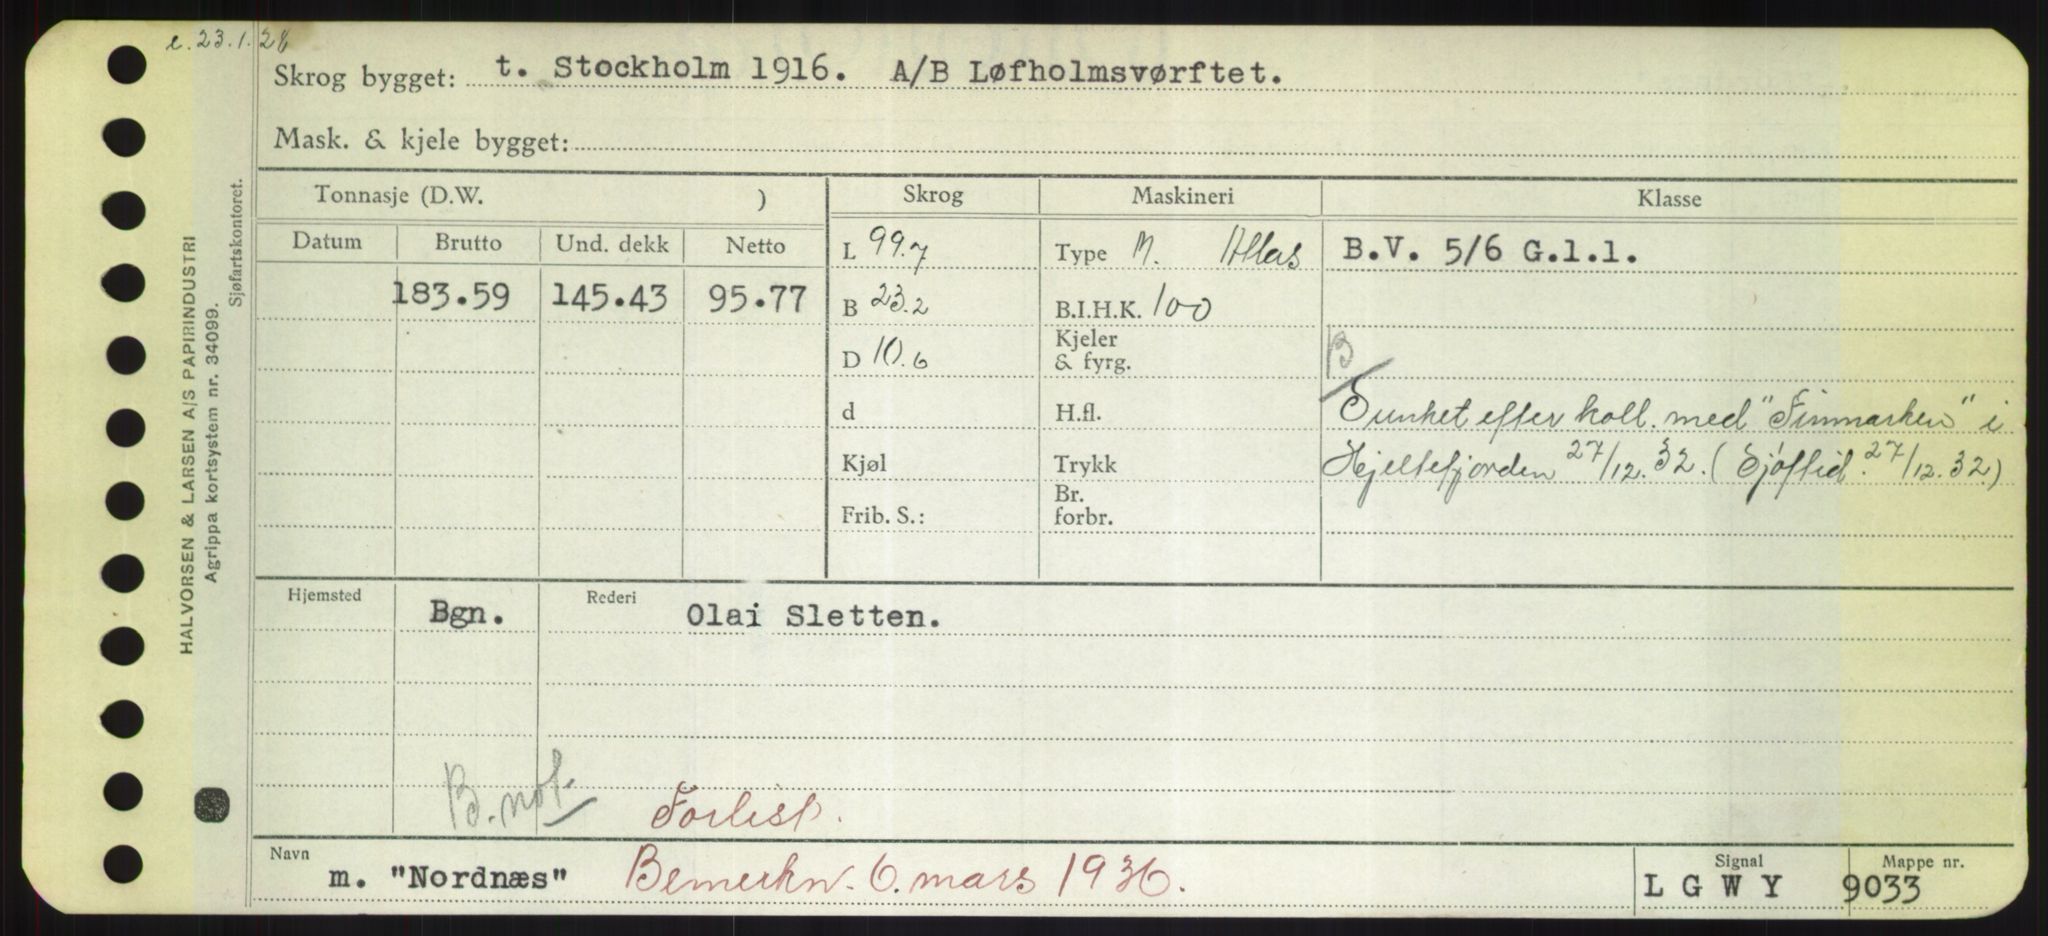 e. 23.1.28
Skrog bygget: t. Stockholm 1916. A/B Løfholmsvørftet.
Mask. & kjele bygget:
Tonnasje (D.W. ) Skrog Maskineri Klasse
Datum Brutto Und. dekk Netto L 99.7 Type M. Atlas B.V. 5/6 G.1.1.
183.59 145.43 95.77 B 23.2 B.I.H.K. 100
D 10.6 Kjeler & fyrg. B
d H.fl. Sunket efter koll. med "Finmarken" i
Kjøl Trykk Hjeltefjorden 27/12.32. (Sjøftid. 27/12.32)
Frib. S.: Br. forbr.
Hjemsted Bgn. Rederi Olai Sletten.
B. not. Forlist.
Navn m. "Nordnæs" Bemerkn. 6. mars 1936. Signal LGWY Mappe nr. 9033
HALVORSEN & LARSEN A/S PAPIRINDUSTRI
Agrippa kortsystem nr. 34099.
Sjøfartskontoret.